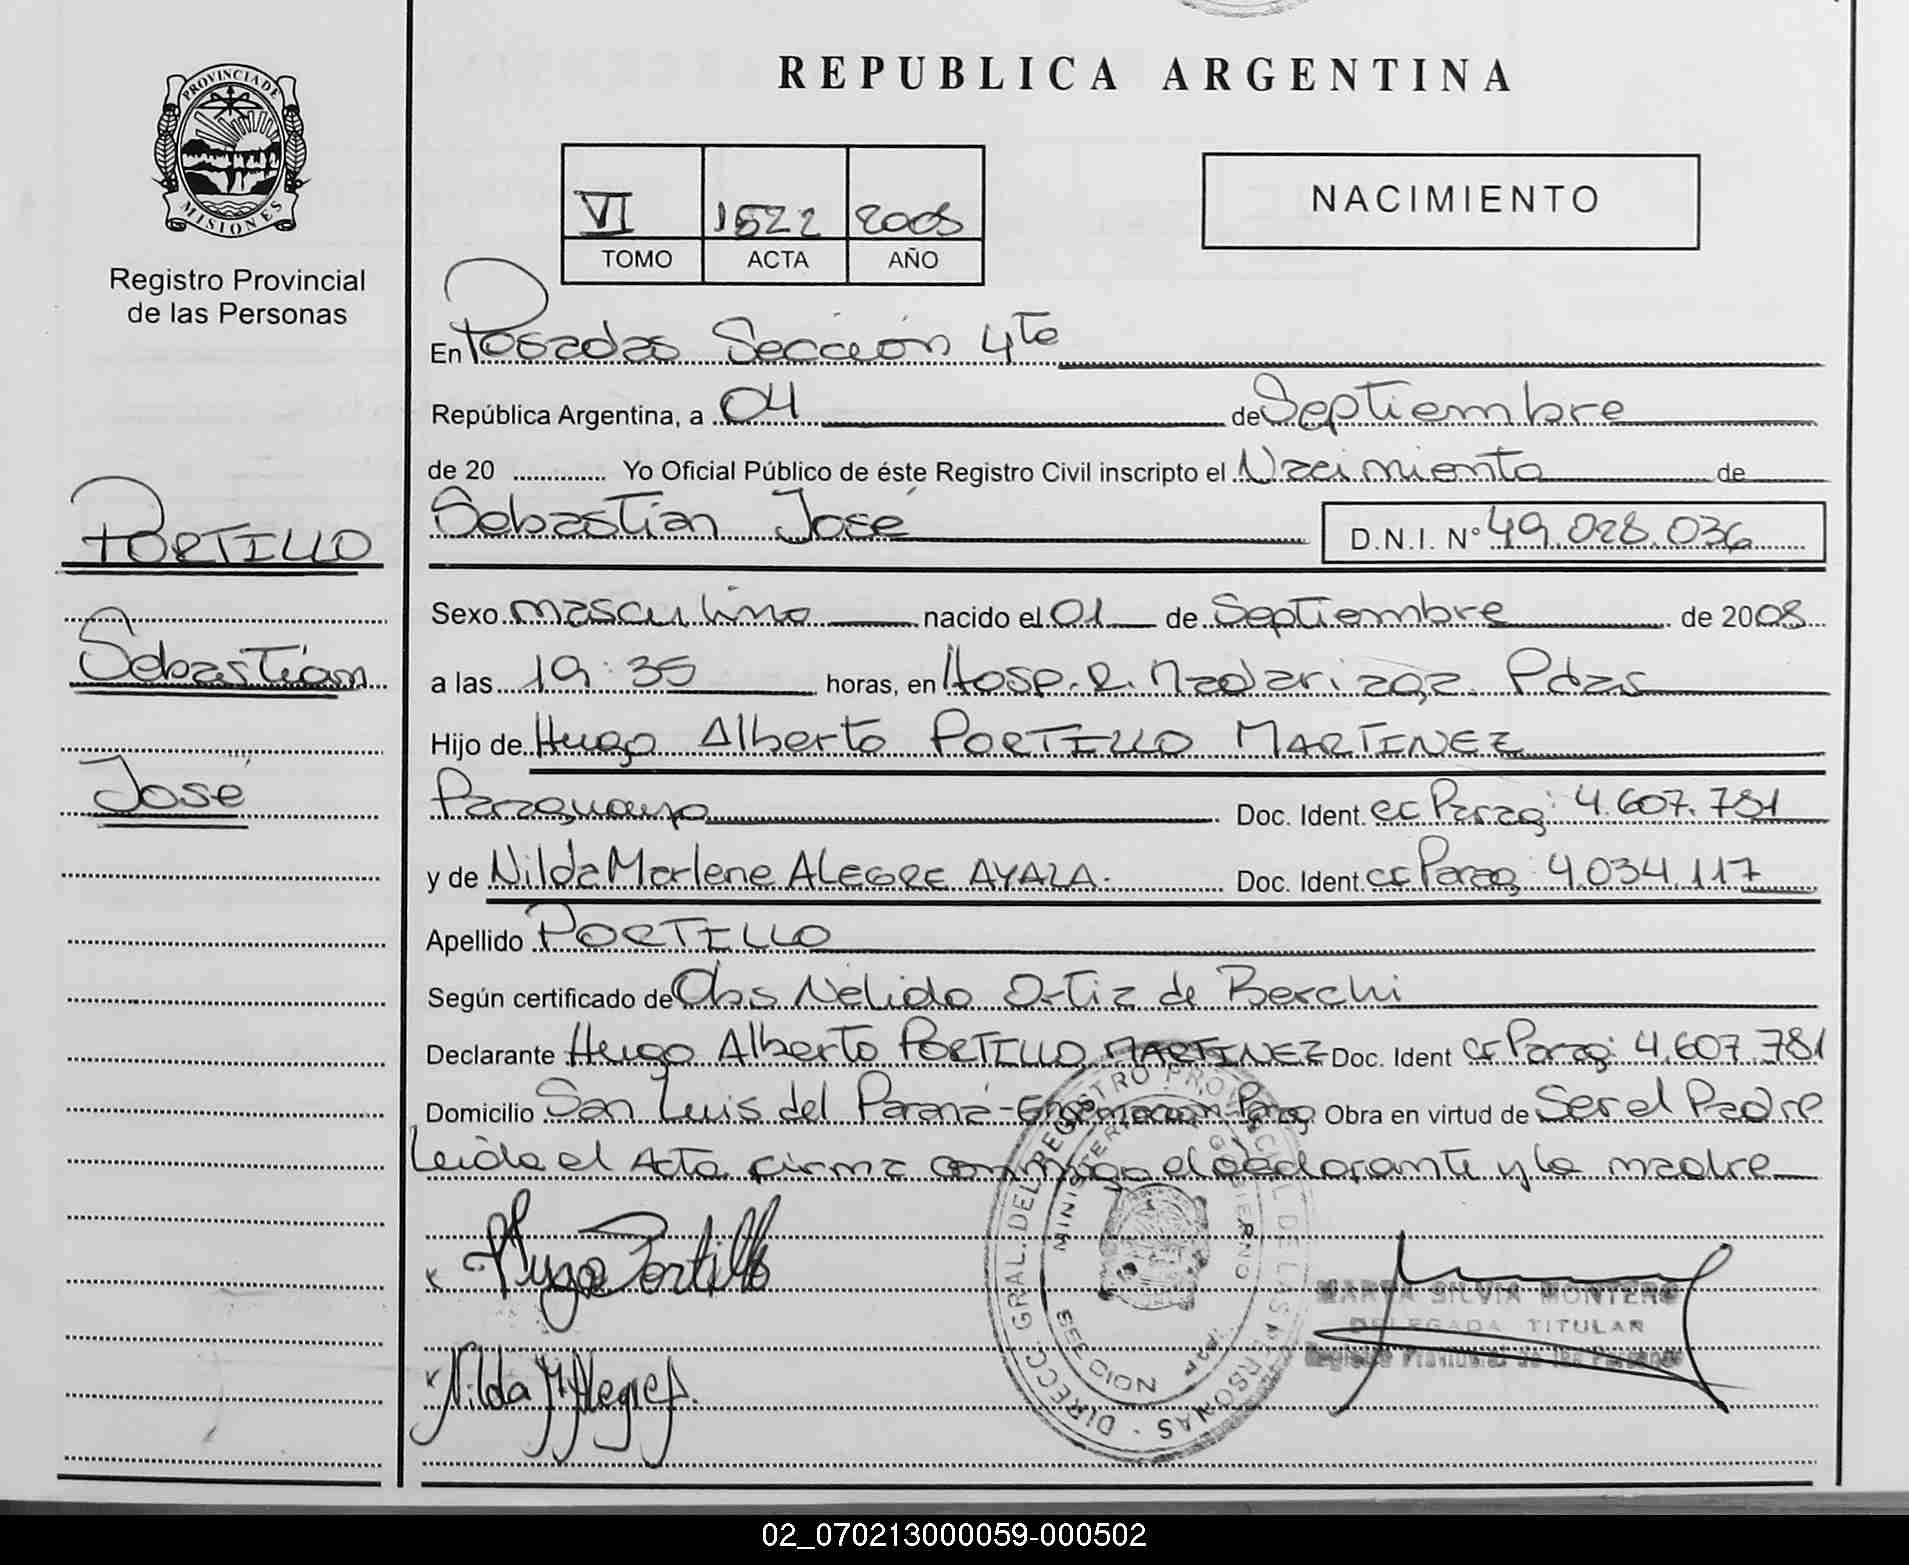 PROVINCIA DE
MISIONES
Registro Provincial
de las Personas
PORTILLO
Sebastián
José
REPUBLICA ARGENTINA
VI 1522 2008
TOMO ACTA AÑO
NACIMIENTO
En Posadas Sección 4ta
República Argentina, a 04 de Septiembre
de 20 .............. Yo Oficial Público de éste Registro Civil inscripto el Nacimiento de
Sebastián José D.N.I. Nº 49.028.036
Sexo masculino nacido el 01 de Septiembre de 2008
a las 19:35 horas, en Hosp. R. Madariaga. Pdas
Hijo de Hugo Alberto PORTILLO MARTINEZ
Paraguayo Doc. Ident. CC Parag: 4.607.781
y de Nilda Marlene ALEGRE AYALA. Doc. Ident. CC Parag: 4.034.117
Apellido PORTILLO
Según certificado de Obs Nélida Ortiz de Berchi
Declarante Hugo Alberto PORTILLO MARTINEZ Doc. Ident CC Parag: 4.607.781
Domicilio San Luis del Paraná-Encarnación-Parag Obra en virtud de Ser el Padre
Leida el Acta firma conmigo el declarante y la madre
x Hugo Portillo
x Nilda M Alegre
DIRECC. GRAL. DEL REGISTRO PROVINCIAL DE LAS PERSONAS
MINISTERIO GOBIERNO
SECCION 4ta.
MARTA SILVIA MONTERO
DELEGADA TITULAR
Registro Provincial de las Personas
02_070213000059-000502